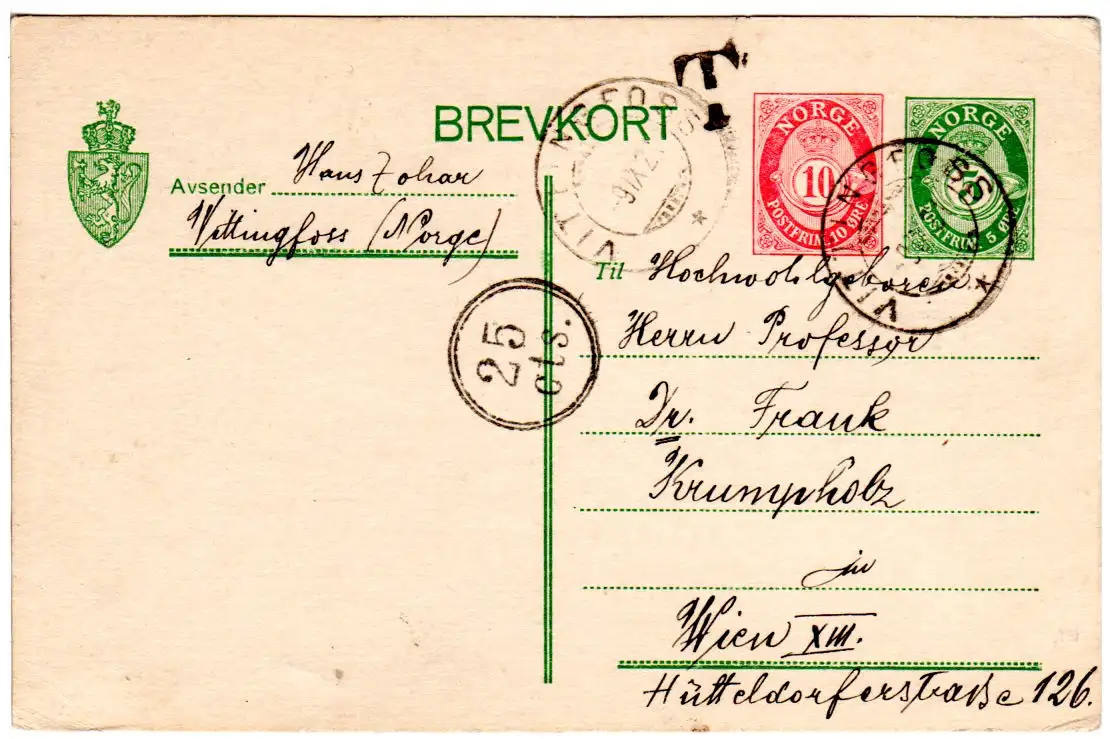 T
BREVKORT
NORGE
10
POSTFRIM. 10 ØRE
NORGE
5
POSTFRIM. 5 ØRE
VITTINGFOSS
VITTINGFOSS
Avsender Hans Zohar
Vittingfoss (Norge)
25
cts.
Til Hochwohlgeboren
Herrn Professor
Dr. Frank
Krumpholz
in
Wien XIII.
Hütteldorferstraße 126.